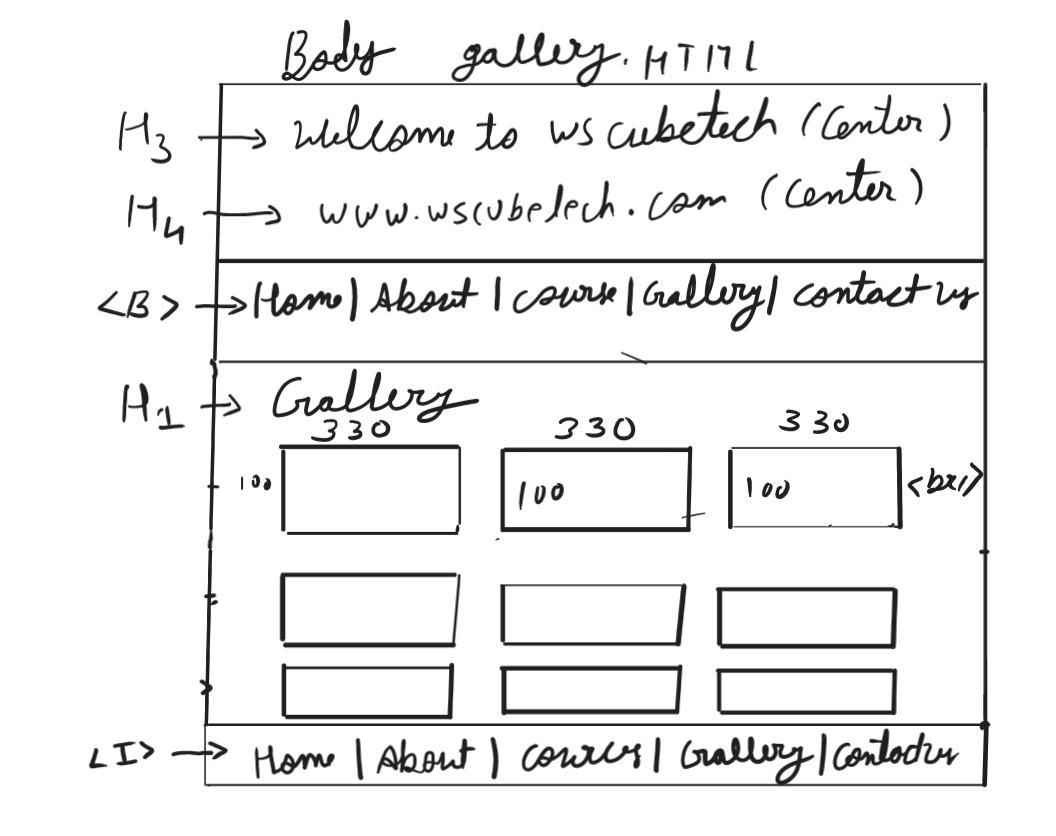 Body gallery.HTML
H3 → Welcome to ws cubetech (Center)
H4 → www.wscubetech.com (Center)
<B> → Home | About | Course | Gallery | contact us
H1 → Gallery
330 330 330
100 100 100 <br/>
<I> → Home | About | Cources | Gallery | Contactus